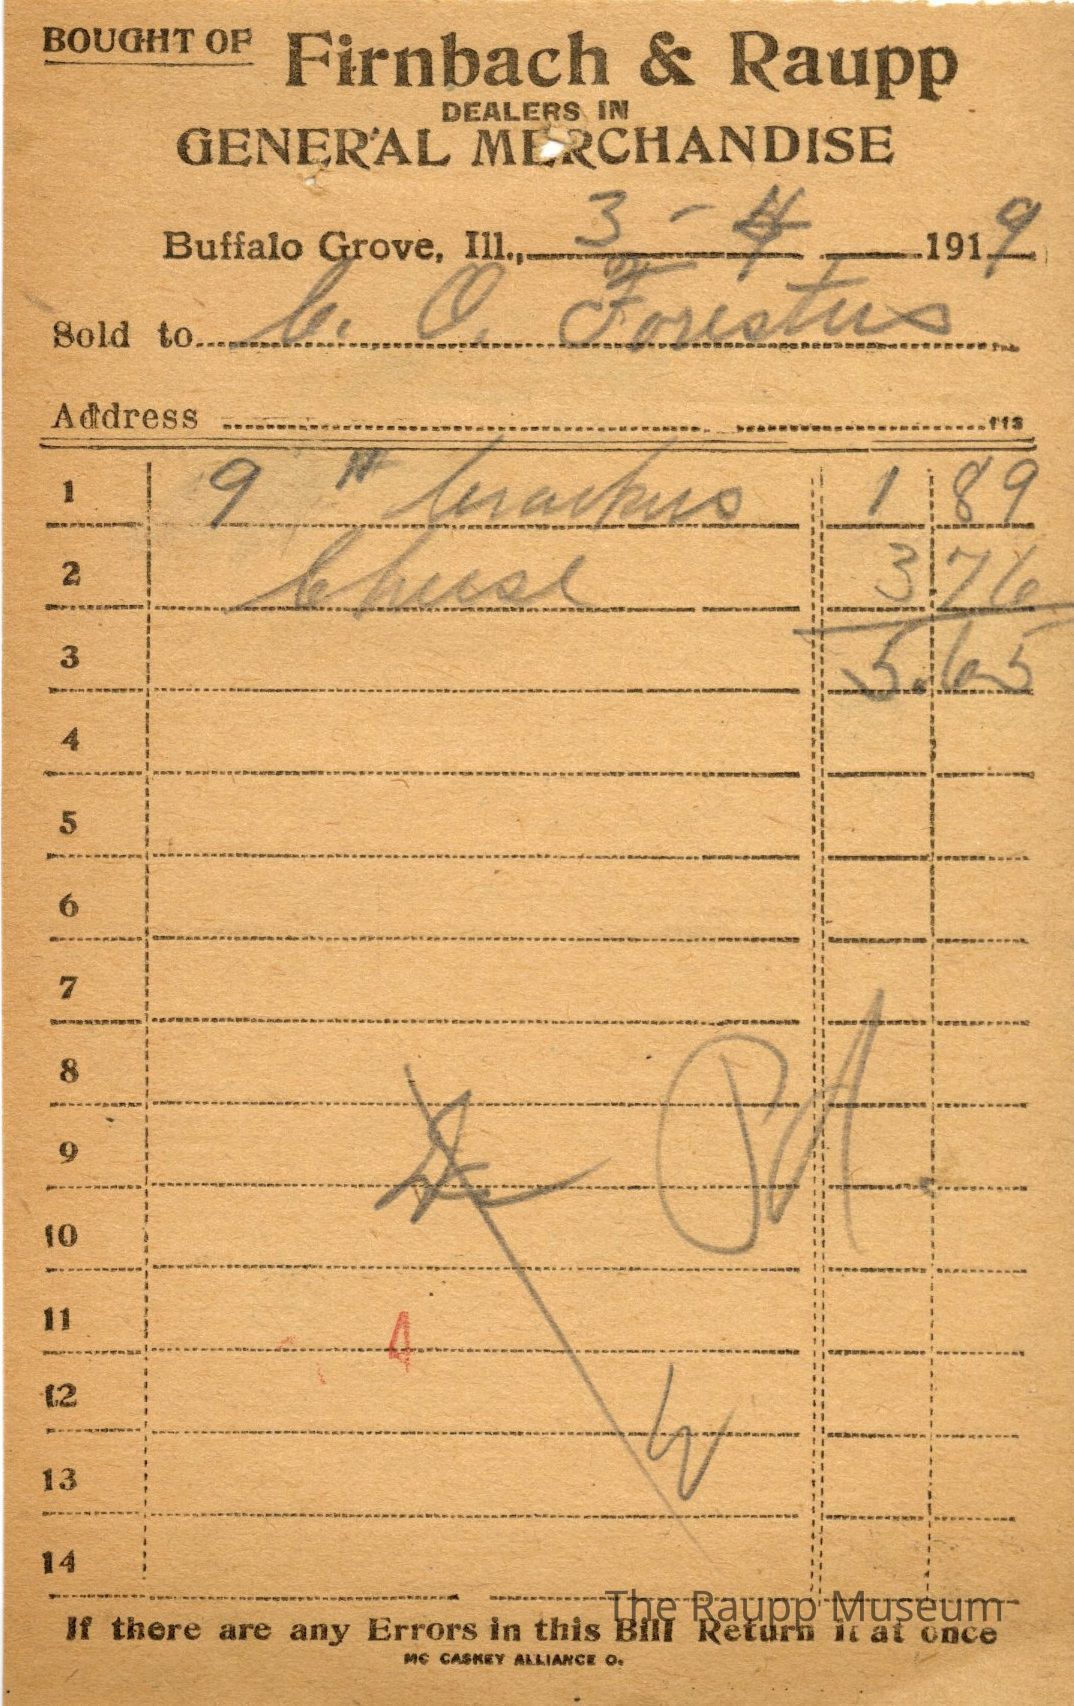 BOUGHT OF Firnbach & Raupp
DEALERS IN
GENERAL MERCHANDISE
Buffalo Grove, Ill., 3 - 4 1919
Sold to C. O. Foresters
Address
1 9 # Crackers 1 89
2 Cheese 3 76
3 5.65
4
5
6
7
8
9
10
11
4
12
13
14
The Raupp Museum
If there are any Errors in this Bill Return it at once
MC CASKEY ALLIANCE O.